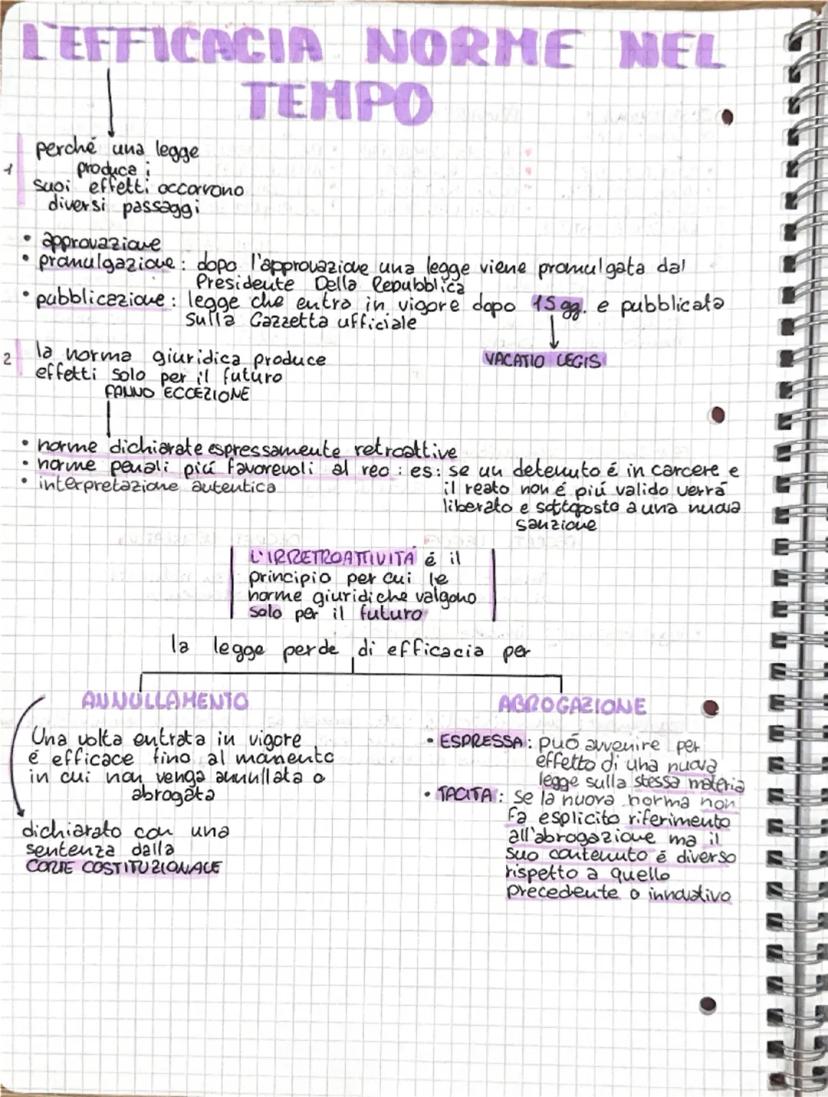 L'EFFICACIA NORME NEL
TEMPO
perché una legge
1 produce i
suoi effetti occorrono
diversi passaggi
• approvazione
• promulgazione : dopo l'approvazione una legge viene promulgata dal
Presidente Della Repubblica
• pubblicazione : legge che entra in vigore dopo 15 gg. e pubblicata
sulla Gazzetta ufficiale
VACATIO LEGIS
2 la norma giuridica produce
effetti solo per il futuro
FANNO ECCEZIONE
• norme dichiarate espressamente retroattive
• norme penali piú favorevoli al reo : es: se un detenuto é in carcere e
• interpretazione autentica
il reato non é piú valido verrá
liberato e sottoposto a una nuova
sanzione
L'IRRETROATTIVITÁ é il
principio per cui le
norme giuridiche valgono
solo per il futuro
la legge perde di efficacia per
ANNULLAMENTO
Una volta entrata in vigore
é efficace fino al momento
in cui non venga annullata o
abrogata
dichiarato con una
sentenza dalla
CORTE COSTITUZIONALE
ABROGAZIONE
• ESPRESSA : puó avvenire per
effetto di una nuova
legge sulla stessa materia
• TACITA : se la nuova norma non
fa esplicito riferimento
all'abrogazione ma il
suo contenuto é diverso
rispetto a quello
precedente o innovativo